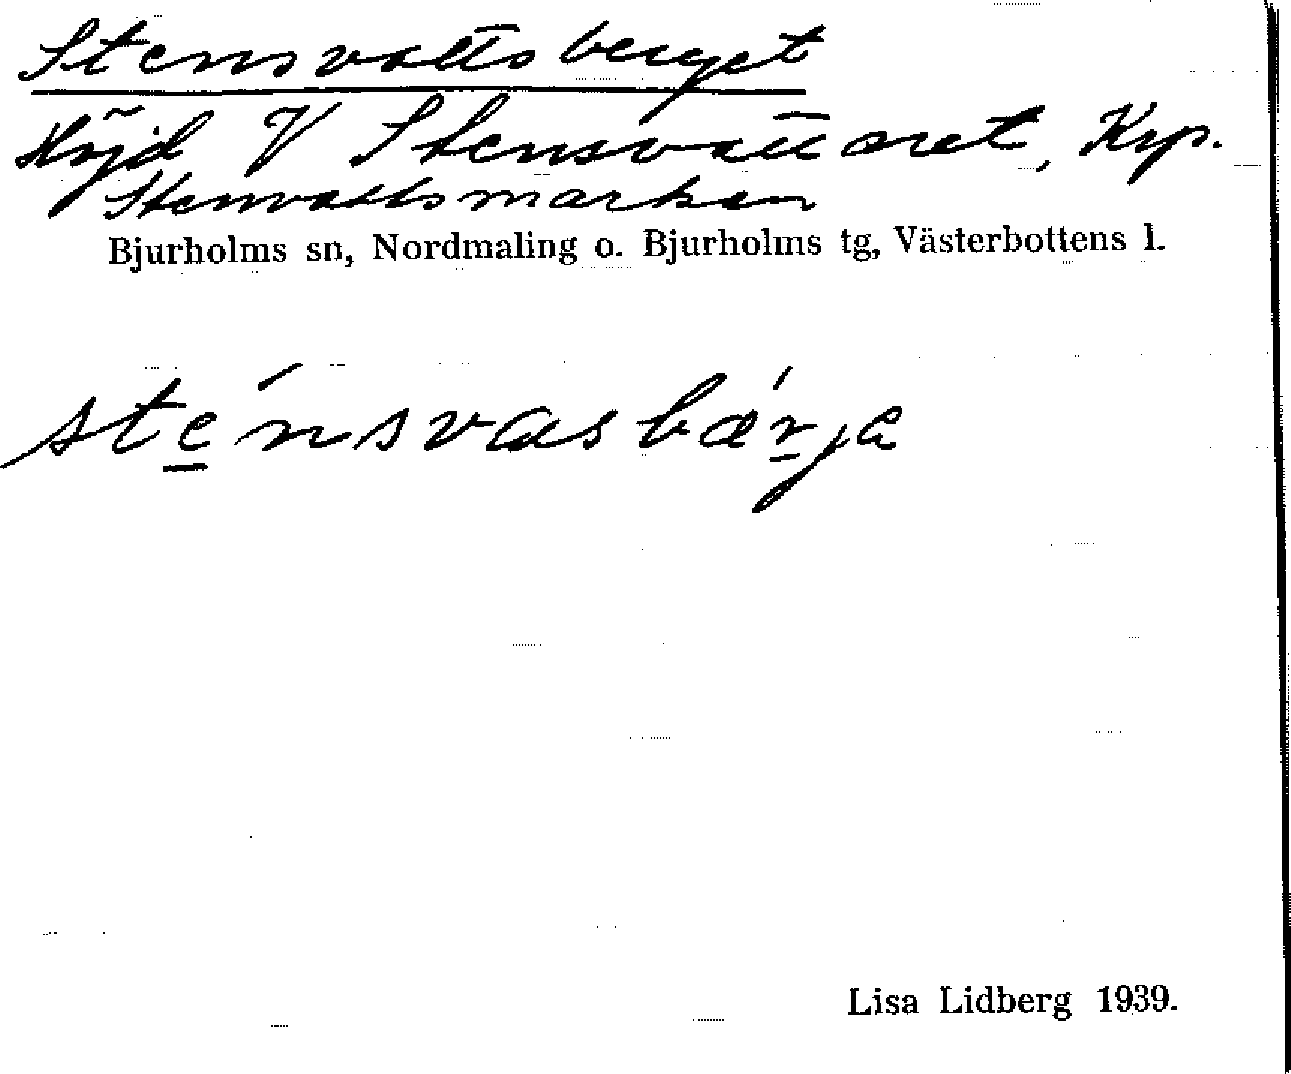 Stensvattsberget
Höjd V Stensvattnet, Krp.
Stensvattsmarken
Bjurholms sn, Nordmaling o. Bjurholms tg, Västerbottens l.
sténsvasbǽrja
Lisa Lidberg 1939.